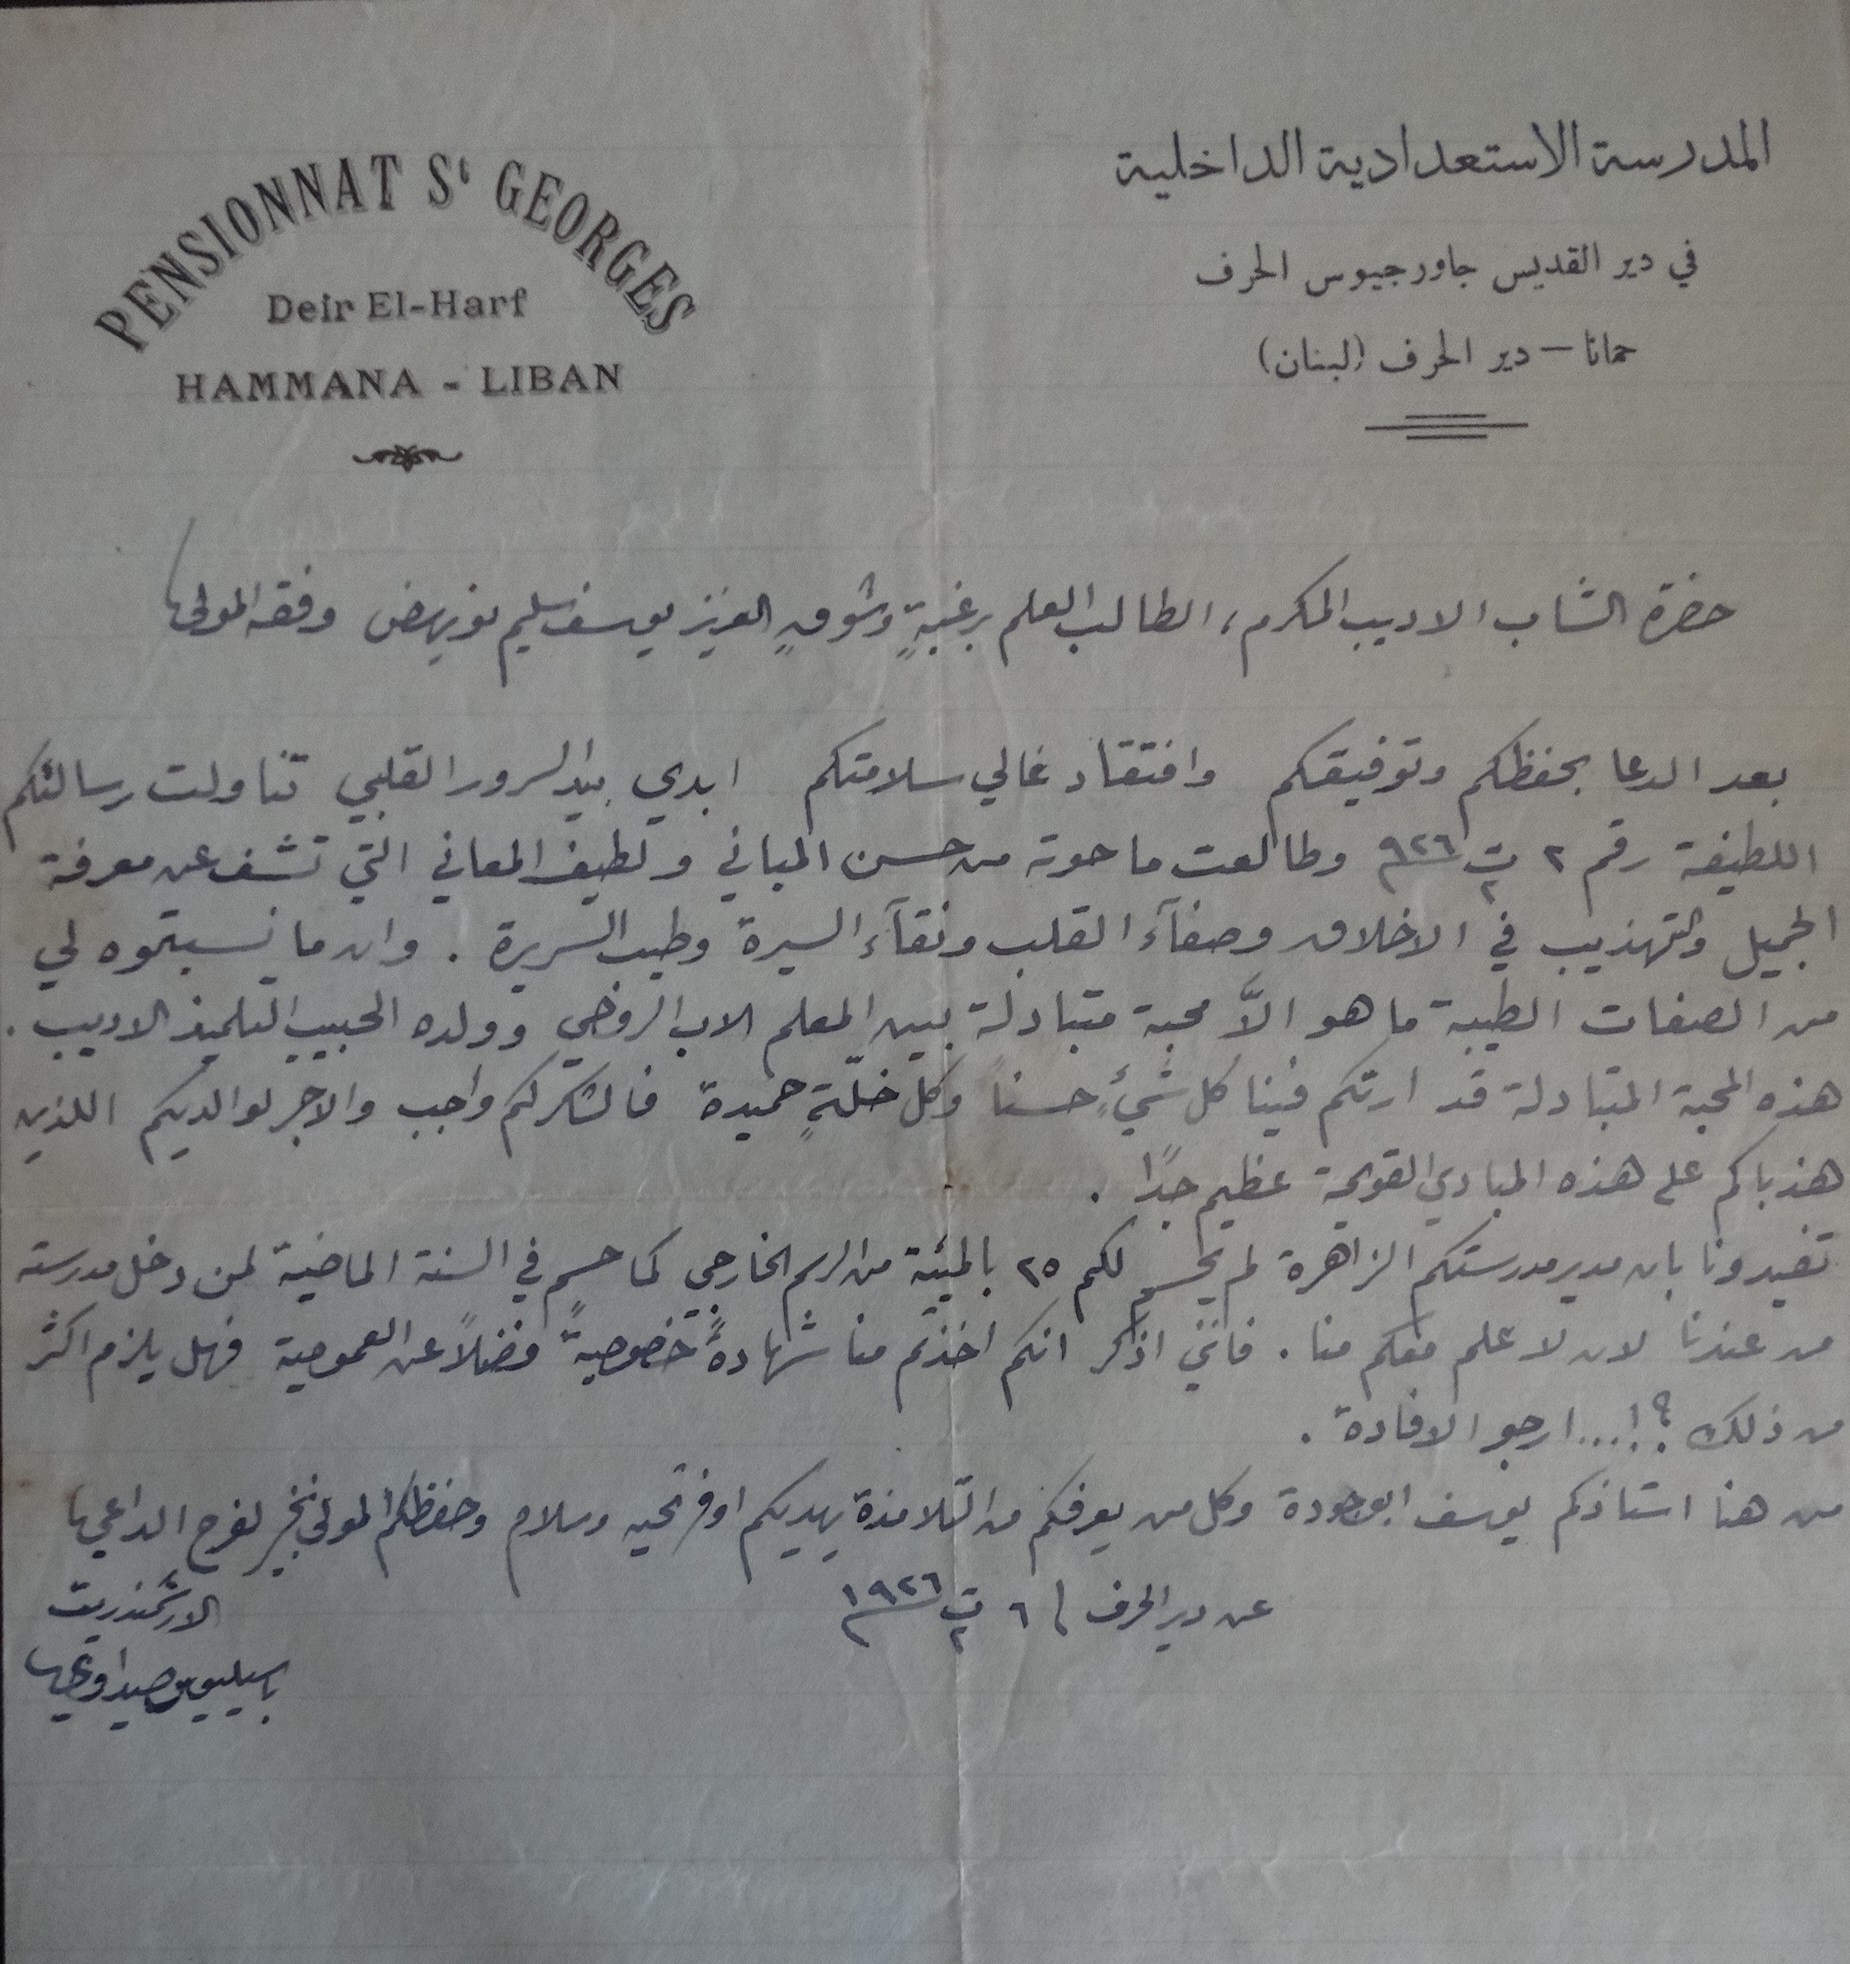 PENSIONNAT St GEORGES
Deir El-Harf
HAMMANA - LIBAN
المدرسة الاستعدادية الداخلية
في دير القديس جاورجيوس الحرف
حمانا — دير الحرف (لبنان)
حضرة الشاب الاديب المكرم، الطالب العلم برغبةٍ وشوقٍ العزيز يوسف سليم نويهض وفقه المولى
بعد الدعا بحفظكم وتوفيقكم وافتقاد غالي سلامتكم ابدي بيد السرور القلبي تناولت رسالتكم
اللطيفة رقم ٢ ت٢ ٩٢٦ وطالعت ما حوته من حسن المباني ولطيف المعاني التي تشف عن معرفة
الجميل والتهذيب في الاخلاق وصفآء القلب ونقآء السيرة وطيب السريرة . وان ما نسبتموه لي
من الصفات الطيبة ما هو الاَّ محبة متبادلة بين المعلم الاب الروحي وولده الحبيب التلميذ الاديب .
هذه المحبة المتبادلة قد ارتكم فينا كل شئٍ حسناً وكل خلّةٍ حميدة فالشكر لكم واجب والاجر لوالديكم اللذين
هذباكم على هذه المبادي القويمة عظيم جدًا .
تفيدونا بان مدير مدرستكم الزاهرة لم يحسم لكم ٢٥ بالميئة من الرسم الخارجي كما حسم في السنة الماضية لمن دخل مدرسته
من عندنا لان لا علم معكم منا . فانني اذكر انكم اخذتم منا شهادةً خصوصيةً فضلاً عن العمومية فهل يلزم اكثر
من ذلك ؟!... ارجو الافادة .
من هنا استاذكم يوسف ابوجودة وكل من يعرفكم من التلامذة يهديكم اوفر تحيه وسلام وحفظكم المولى بخير لفرح الداعي
عن دير الحرف ٦ ت٢ ١٩٢٦
الارشمندريت
باسيليوس صيداوي